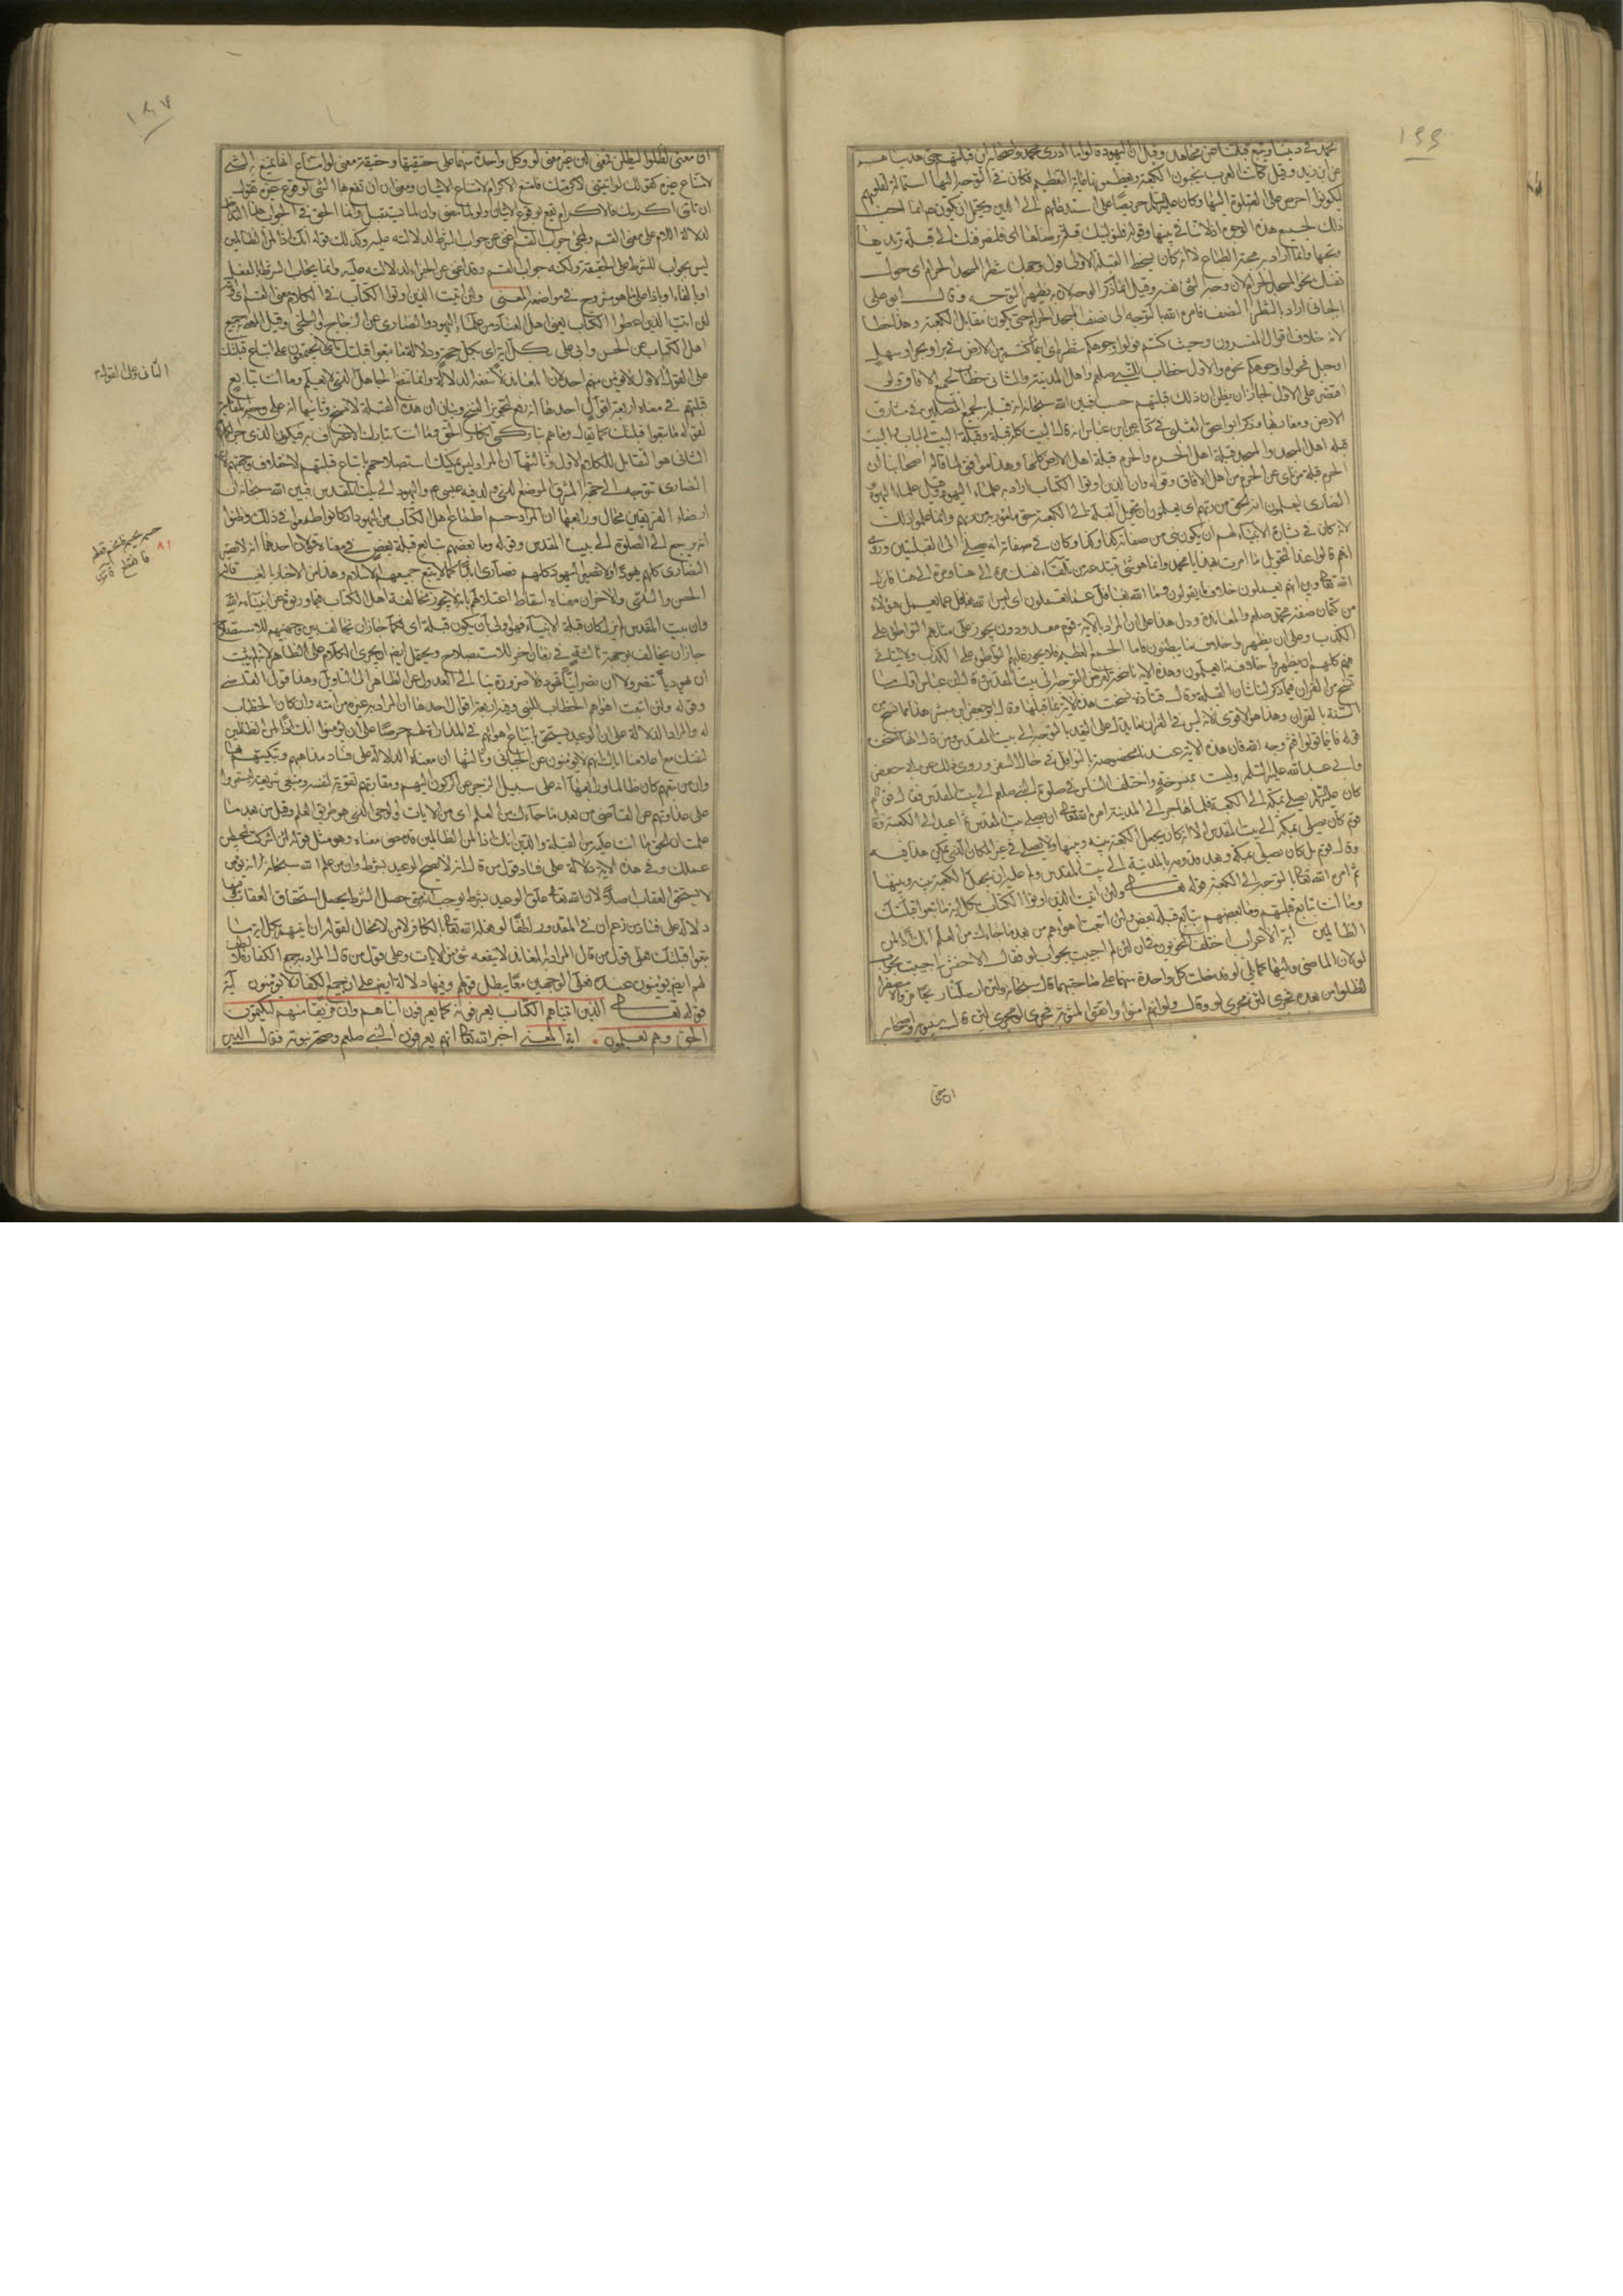 ١٤٦
محمد في ديننا ويتبع قبلتنا عن مجاهد وقيل ان اليهود قالوا ما ادرى محمد واصحابه اين قبلتهم حتى هديناهم
عن ابن زيد وقيل كانت العرب يحبون الكعبة ويعظمونها غاية التعظيم فكان في التوجه اليها استمالة لقلوبهم
ليكونوا احرص على الصلوة اليها وكان حريصا على استدعائهم الى الدين ويحتمل ان يكون انما احب
ذلك لجميع هذه الوجوه اذ لا تنافي بينها وقوله فلنولينك قبلة ترضاها اى فلنصرفنك الى قبلة تريدها
وتحبها وانما اراد به محبة الطباع لا انه كان يسخط القبلة الاولى فول وجهك شطر المسجد الحرام اى حول
نفسك نحو المسجد الحرام لان وجه الشئ نفسه وقيل انما ذكر الوجه لان به يظهر التوجه وقال ابو على
الجبائى اراد بالشطر النصف فامره الله بالتوجه الى نصف المسجد الحرام حتى يكون مقابل الكعبة وهذا خطا
لانه خلاف اقوال المفسرين وحيث كنتم فولوا وجوهكم شطره اى اينما كنتم من الارض في بر او بحر او سهل
او جبل فحولوا وجوهكم نحوه والاول خطاب للنبي صلعم واهل المدينة والثانى خطاب لجميع الافاق ولو
اقتصر على الاول لجاز ان يظن ان ذلك قبلتهم حسب فبين الله سبحانه انه قبلة لجميع المصلين في مشارق
الارض ومغاربها وذكر ابو اسحق الثعلبى في كتابه عن ابن عباس انه قال البيت كله قبلة وقبلة البيت الباب والبيت
قبلة اهل المسجد والمسجد قبلة اهل الحرم والحرم قبلة اهل الارض كلها وهذا موافق لما قاله اصحابنا ان
الحرم قبلة من نأى عن الحرم من اهل الافاق وقوله وان الذين اوتوا الكتاب اراد به علماء اليهود وقيل علماء اليهود و
النصارى ليعلمون انه الحق من ربهم اى يعلمون ان تحويل القبلة الى الكعبة حق مامور به من ربهم وانما علموا ذلك
لانه كان في بشارة الانبياء لهم ان يكون نبى من صفاته كذا وكذا وكان في صفاته انه يصلى الى القبلتين وروى
انهم قالوا عند التحويل ما امرت بهذا يا محمد وانما هو شئ تبتدعه من تلقاء نفسك مرة الى هنا ومرة الى هنا فانزل
الله تعالى وبين انهم يعلمون خلاف ما يقولون وما الله بغافل عما يعملون اى ليس الله بغافل عما يعمل هؤلاء
من كتمان صفة محمد صلعم والمعاندة ودل هذا على ان المراد بالاية قوم معدودون يجوز على مثلهم التواطئ على
الكذب وعلى ان يظهروا خلاف ما يبطنون فاما الجمع العظيم فلا يجوز عليهم التواطئ على الكذب ولا يتاتى
منهم كلهم ان يظهروا خلاف ما يعلمون وهذه الاية ناسخة لفرض التوجه الى بيت المقدس قال ابن عباس اول ما
نسخ من القران فيما ذكر لنا شان القبلة وقال قتادة نسخت هذه الاية ما قبلها وقال ابو جعفر بن مبشر هذا مما نسخ من
السنة بالقران وهذا هو الاقوى لانه ليس في القران ما يدل على التعبد بالتوجه الى بيت المقدس ومن قال انها نسخت
قوله فاينما تولوا فثم وجه الله فان هذه الاية عندنا مخصوصة بالنوافل في حال السفر وروى ذلك عن ابى جعفر
وابى عبد الله عليهما السلم وليست بمنسوخة واختلف الناس في صلوة النبى صلعم الى بيت المقدس فقال قوم
كان يصلى بمكة الى الكعبة فلما هاجر الى المدينة امره الله تعالى ان يصلى الى بيت المقدس ثم اعيد الى الكعبة وقال
قوم كان يصلى بمكة الى بيت المقدس الا انه كان يجعل الكعبة بينه وبينها ولا يصلى في غير المكان الذى يمكن هذا فيه
وقال قوم بل كان يصلى بمكة وبعد قدومه بالمدينة الى بيت المقدس ولم يكن عليه ان يجعل الكعبة بينه وبينها
ثم امره الله تعالى بالتوجه الى الكعبة قوله تعالى ولئن اتيت الذين اوتوا الكتاب بكل اية ما تبعوا قبلتك
وما انت بتابع قبلتهم وما بعضهم بتابع قبلة بعض ولئن اتبعت اهواءهم من بعد ما جاءك من العلم انك اذا لمن
الظالمين اية الاعراب اختلف النحويون في ان لئن لم اجيب بجواب لو فقال الاخفش اجيبت بجواب
لو لان الماضى وليها كما يلى لو فدخلت كل واحدة منهما على صاحبتها قال سبحانه ولئن ارسلنا ريحا فراوه مصفرا
لظلوا من بعده فجرى لئن مجرى لو وقال ولو انهم امنوا واتقوا لمثوبة فجرى لو مجرى لئن قال سيبويه واصحابه
ان معنى
١٤٧
ان معنى لظلوا ليظلن فمعنى لئن غير معنى لو وكل واحدة منهما على حقيقتها وحقيقة معنى لو امتناع انها يمتنع به الشئ
لامتناع غيره كقولك لو اتيتنى لاكرمتك فامتنع الاكرام لامتناع الاتيان ومعنى ان ان تقع بها الشئ لوقوع غيره تقول
ان تاتنى اكرمك فالاكرام يقع بوقوع الاتيان ولو لما مضى وان لما يستقبل وانما الحق في الجواب هذا التداخل
لدلالة اللام على معنى القسم
ليس بجواب للشرط على الحقيقة ولكنه جواب القسم وقد اغنى عن الجزاء لدلالته عليه وانما يجاب الشرط بالفعل
او بالفاء او باذا على ما هو مشروح في مواضعه المعنى ولئن اتيت الذين اوتوا الكتاب في الكلام معنى القسم اى والله
لئن اتيت الذين اعطوا الكتاب يعنى اهل العناد من علماء اليهود والنصارى عن الزجاج والبلخى وقيل المعنى به جميع
اهل الكتاب عن الحسن وابى على بكل اية اى بكل حجة ودلالة ما تبعوا قبلتك اى لا يجتمعون على اتباع قبلتك
على القول الثانى وعلى القول الاول لا يؤمن منهم احد لان المعاند لا تنفعه الدلالة وانما تنفع الجاهل الذى لا يعلم وما انت بتابع
قبلتهم في معناه اربعة اقوال احدها انه رفع لتجويز النسخ وبيان ان هذه القبلة لا تنسخ وثانيها انه على وجه المقابلة
لقوله ما تبعوا قبلتك كما يقال وما هم بتاركى انكار الحق وما انت بتارك الاعتراف به فيكون الذى جر الكلام
الثانى هو التقابل للكلام الاول وثالثها ان المراد ليس يمكنك استصلاحهم باتباع قبلتهم لاختلاف وجهتهم لان
النصارى تتوجه الى جهة المشرق الموضع الذى ولد فيه عيسى ع واليهود الى بيت المقدس فبين الله سبحانه ان
ارضاء الفريقين محال ورابعها ان المراد حسم اطماع اهل الكتاب من اليهود اذ كانوا طمعوا في ذلك وظنوا
انه يرجع الى الصلوة الى بيت المقدس وقوله وما بعضهم بتابع قبلة بعض في معناه قولان احدهما انه لا يصير
النصارى كلهم يهودا او لا تصير اليهود كلهم نصارى ابدا كما لا يتبع جميعهم الاسلام وهذا من الاخبار بالغيب قاله
الحسن والسدى والاخر ان معناه اسقاط اعتلالهم بانه لا يجوز مخالفة اهل الكتاب فيما ورثوه عن انبياء الله
وان بيت المقدس لم يزل كان قبلة الانبياء فهو اولى بان يكون قبلة اى فكما جاز ان يخالف بين وجهتيهم للاستصلاح
جاز ان يخالف بوجهة ثالثة في زمان اخر للاستصلاح ويحتمل ايضا ان يجرى الكلام على الظاهر لانه لم يثبت
ان يهوديا تنصر ولا ان نصرانيا تهود فلا ضرورة بنا الى العدول عن الظاهر الى التاويل وهذا قول القاضى
وقوله ولئن اتبعت اهواءهم الخطاب للنبى وفيه اربعة اقوال احدها ان المراد به غيره من امته وان كان الخطاب
له والمراد الدلالة على ان الوعيد يستحق باتباع اهوائهم
لنفسك مع اعلامنا اياك انهم لا يؤمنون عن الجبائى وثالثها ان معناه الدلالة على فساد مذاهبهم وتبكيتهم بها
وان من تبعهم كان ظالما ورابعها انه على سبيل الزجر عن الركون اليهم ومقاربتهم تقوية لنفسه ومتبعى شريعته ليستمروا
على عداوتهم عن القاضى من بعد ما جاءك من العلم اى من الايات والوحى الذى هو طريق العلم وقيل من بعد ما
علمت ان الحق ما انت عليه من القبلة والدين انك اذا لمن الظالمين قد مضى معناه وهو مثل قوله لئن اشركت ليحبطن
عملك وفي هذه الاية دلالة على فساد قول من قال انه لا يصح الوعيد بشرط وان من علم الله سبحانه انه يؤمن
لا يستحق العقاب اصلا لان الله تعالى علق الوعيد بشرط يوجب انه متى حصل الشرط يحصل استحقاق العقاب وفيها
دلالة على فساد من زعم ان في المقدور لطفا لو فعله الله تعالى بالكافر لامن لا محال لقوله لئن اتيتهم بكل اية ما
تبعوا قبلتك فعلى قول من قال المراد به المعاند لا ينفعه شئ من الايات وعلى قول من قال المراد به جميع الكفار فلا لطف
لهم ايضا يؤمنون عنده فعلى الوجهين معا يبطل قولهم وفيها دلالة ايضا على ان جميع الكفار لا يؤمنون آية
قوله تعالى الذين اتيناهم الكتاب يعرفونه كما يعرفون ابناءهم وان فريقا منهم ليكتمون
الحق وهم يعلمون اية المعنى اخبر الله تعالى انهم يعرفون النبى صلعم وصحة نبوته فقال الذين
الثانى وعلى القول